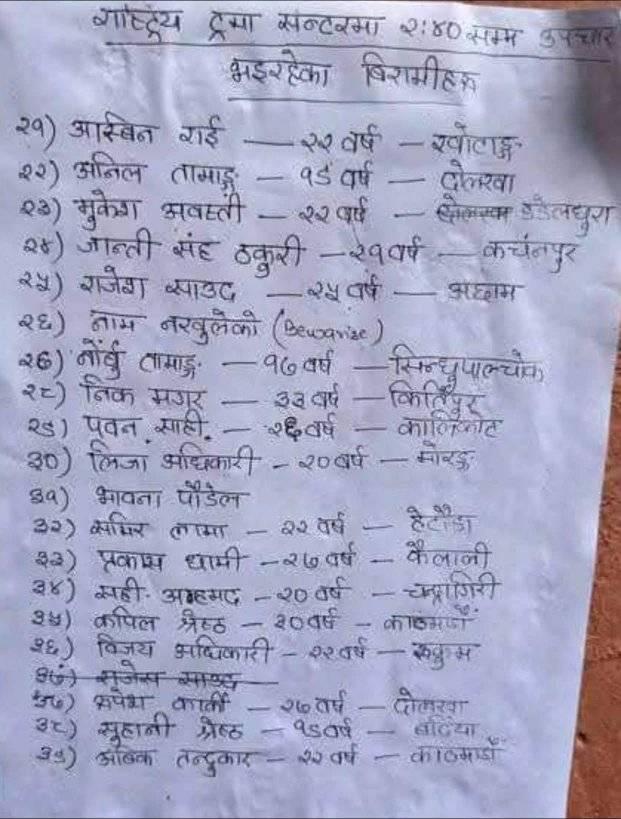 राष्ट्रिय ट्रमा सेन्टरमा २:४० सम्म उपचार
भइरहेका बिरामीहरू
२१) आस्बिन राई — २२ वर्ष — खोटाङ्ग
२२) अनिल तामाङ्ग - १९ वर्ष — दोलखा
२३) मुकेश अवस्ती - २२ वर्ष - डडेलधुरा
२४) जान्ती संह ठकुरी - २१ वर्ष — कचंनपुर
२५) राजेश साउद — २५ वर्ष — अछाम
२६) नाम नखुलेको (Bewarise)
२७) नोर्बु तामाङ्ग — १७ वर्ष — सिन्धुपाल्चोक
२८) निक मगर — ३३ वर्ष — किर्तिपुर
२९) पवन साही - २६ वर्ष — कालिकोट
३०) लिजा अधिकारी - २० वर्ष - मोरङ्ग
३१) भावना पौडेल
३२) समिर लामा - २२ वर्ष - हेटौडा
३३) प्रकाश धामी - २७ वर्ष - कैलाली
३४) मही. अहमद - २० वर्ष - चन्द्रागिरी
३५) कपिल श्रेष्ठ - ३० वर्ष - काठमाडौं
३६) विजय अधिकारी - २२ वर्ष - रुकुम
३७) राजेस साउद
३७) रुपेश कार्की - २७ वर्ष - दोलखा
३८) सुहानी श्रेष्ठ - १९ वर्ष - बर्दिया
३९) अबिक तन्दुकार - २२ वर्ष - काठमाडौं